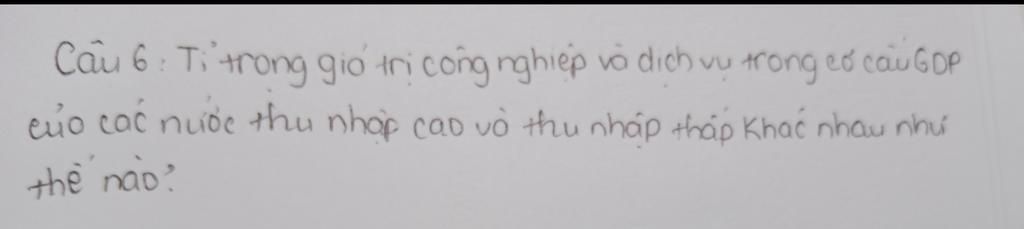 Câu 6: Tỉ trọng giá trị công nghiệp và dịch vụ trong cơ cấu GDP
của các nước thu nhập cao và thu nhập thấp khác nhau như
thế nào?